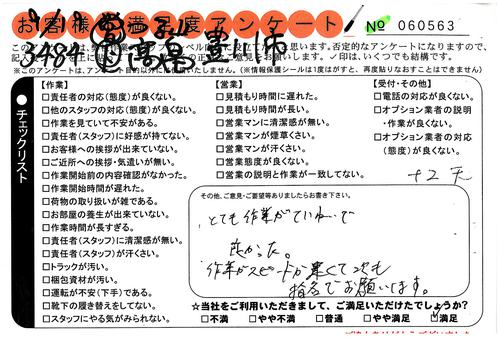 お客様満足度アンケート No 060563
9/19
3484 高是 豊川市
※このアンケートは、アンケート目的以外には使いたしません。(※情報保護シールは1度はがすと、再度貼りなおすことはできません)
チェックリスト
【作業】
□責任者の対応(態度)が良くない。
□他のスタッフの対応(態度)が良くない。
□作業を見ていて不安がある。
□責任者(スタッフ)に好感が持てない。
□お客様への挨拶が出来ていない。
□ご近所への挨拶・気遣いが無い。
□作業開始前の内容確認がなかった。
□作業開始時間が遅れた。
□荷物の取り扱いが雑である。
□お部屋の養生が出来ていない。
□作業時間が長すぎる。
□責任者(スタッフ)に清潔感が無い。
□責任者(スタッフ)が汗くさい。
□トラックが汚い。
□梱包資材が汚い。
□運転が不安(下手)である。
□靴下の履き替えをしてない。
□スタッフにやる気がみられない。
【営業】
□見積もり時間に遅れた。
□見積もり時間が長い。
□営業マンに清潔感が無い。
□営業マンが煙草くさい。
□営業マンが汗くさい。
□営業態度が良くない。
□営業の説明と作業が一致してない。
【受付・その他】
□電話の対応が良くない。
□オプション業者の説明
・作業が良くない。
□オプション業者の対応
(態度)が良くない。
その他、ご意見・ご要望等ありましたらお書き下さい。
とても作業がていねいで
良かった。
作業がスピードが速くて次も
指名でお願いします。
☆当社をご利用いただきまして、ご満足いただけたでしょうか?
□不満 □やや不満 □普通 □やや満足 □満足